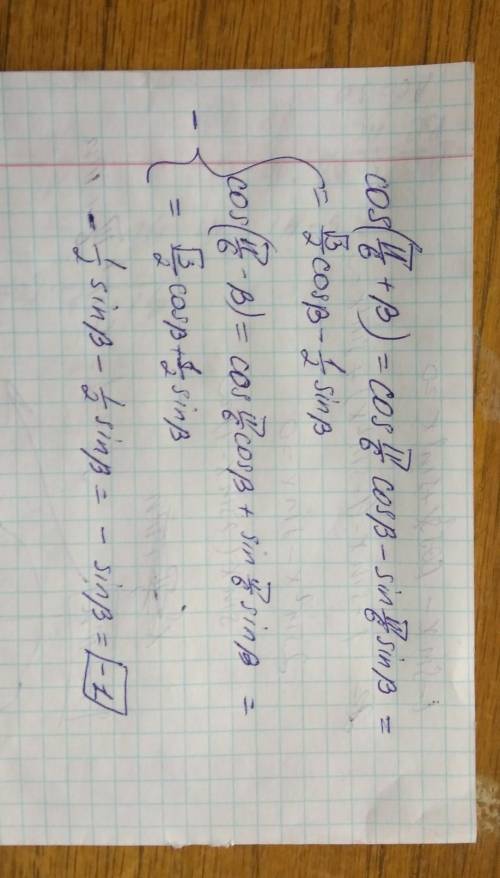 cos(π/6 + β) = cos π/6 cosβ - sin π/6 sinβ =
= √3/2 cosβ - 1/2 sinβ
-
cos(π/6 - β) = cos π/6 cosβ + sin π/6 sinβ =
= √3/2 cosβ + 1/2 sinβ
- 1/2 sinβ - 1/2 sinβ = - sinβ = -1